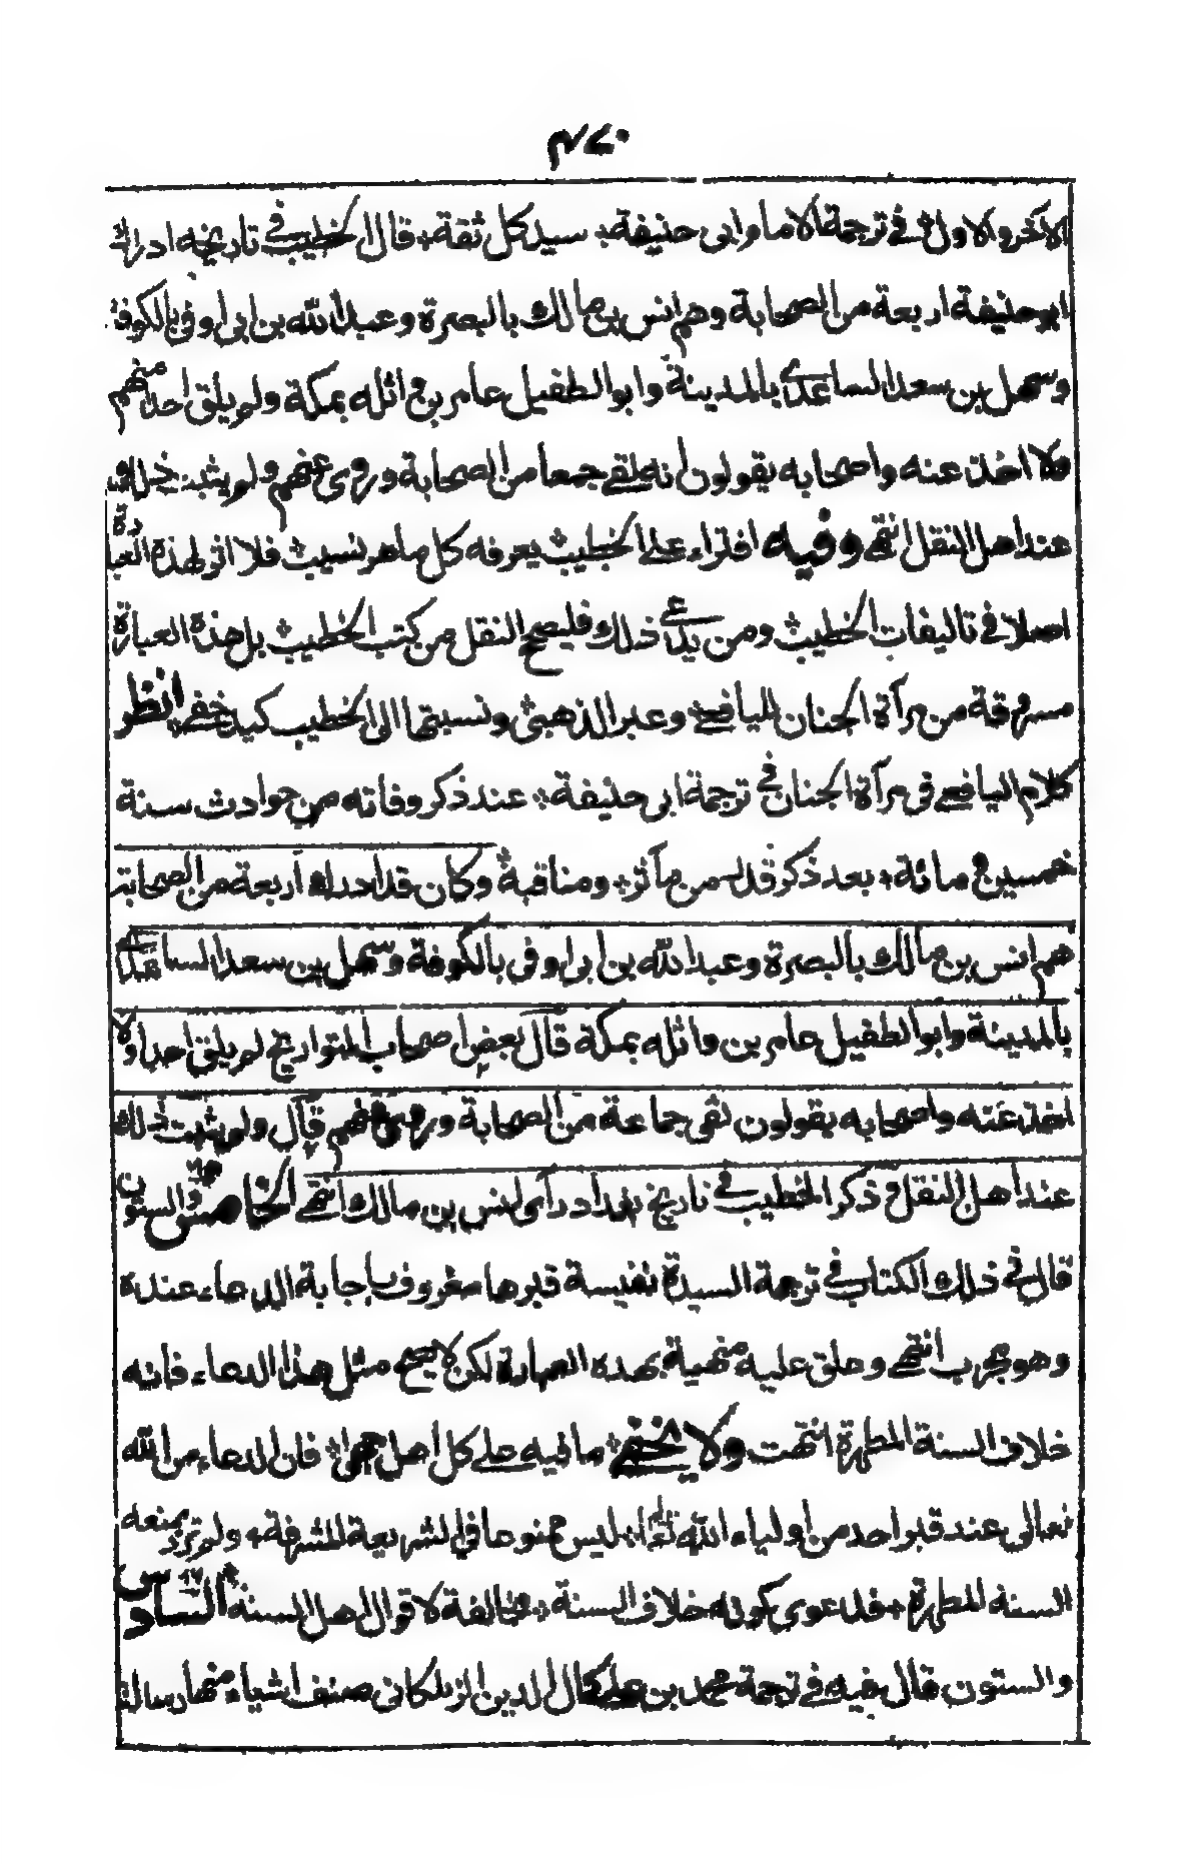 ٤٧٠
الآخر والاول في ترجمة الامام ابى حنيفة سيد كل ثقة قال الخطيب في تاريخه ادرك
ابو حنيفة اربعة من الصحابة وهم انس بن مالك بالبصرة وعبد الله بن ابى اوفى بالكوفة
وسهل بن سعد الساعدى بالمدينة وابو الطفيل عامر بن واثله بمكة ولم يلق احدا منهم
ولا اخذ عنه واصحابه يقولون انه لقى جمعا من الصحابة وروى عنهم ولم يثبت ذلك
عند اهل النقل انتهى وفيه افتراء على الخطيب يعرفه كل ماهر نسيب فلا اثر لهذه العبارة
اصلا في تاليفات الخطيب ومن يدعى ذلك فليصحح النقل من كتب الخطيب بل هذه العبارة
مسروقة من مرآة الجنان لليافعى وعبر الذهبى ونسبتها الى الخطيب كيد خفى انظر
كلام اليافعى فى مرآة الجنان في ترجمة ابى حنيفة عند ذكر وفاته من حوادث سنة
خمسين ومائة بعد ذكر قدر من مآثره ومناقبه وكان قد ادرك اربعة من الصحابة
هم انس بن مالك بالبصرة وعبد الله بن ابى اوفى بالكوفة وسهل بن سعد الساعدى
بالمدينة وابو الطفيل عامر بن واثله بمكة قال بعض اصحاب التواريخ لم يلق احدا ولا
اخذ عنه واصحابه يقولون لقى جماعة من الصحابة وروى عنهم قال ولم يثبت ذلك
عند اهل النقل وذكر الخطيب في تاريخ بغداد رآى انس بن مالك انتهى الخامس والستون
قال في ذلك الكتاب في ترجمة السيدة نفيسة قبرها معروف باجابة الدعاء عنده
وهو مجرب انتهى وعلق عليه منهية بهذه العبارة لكن لا يصح مثل هذا الدعاء فانه
خلاف السنة المطهرة انتهت ولا يخفى ما فيه على كل اصل جهرا فان الدعاء من الله
تعالى عند قبر احد من اولياء الله تعالى ليس ممنوعا في الشريعة المشرفة ولم ترد بمنعه
السنة المطهرة فدعوى كونه خلاف السنة مخالفة لاقوال اهل السنه السادس
والستون قال فيه في ترجمة محمد بن على كمال الدين الزملكانى صنف اشياء منها رسالة